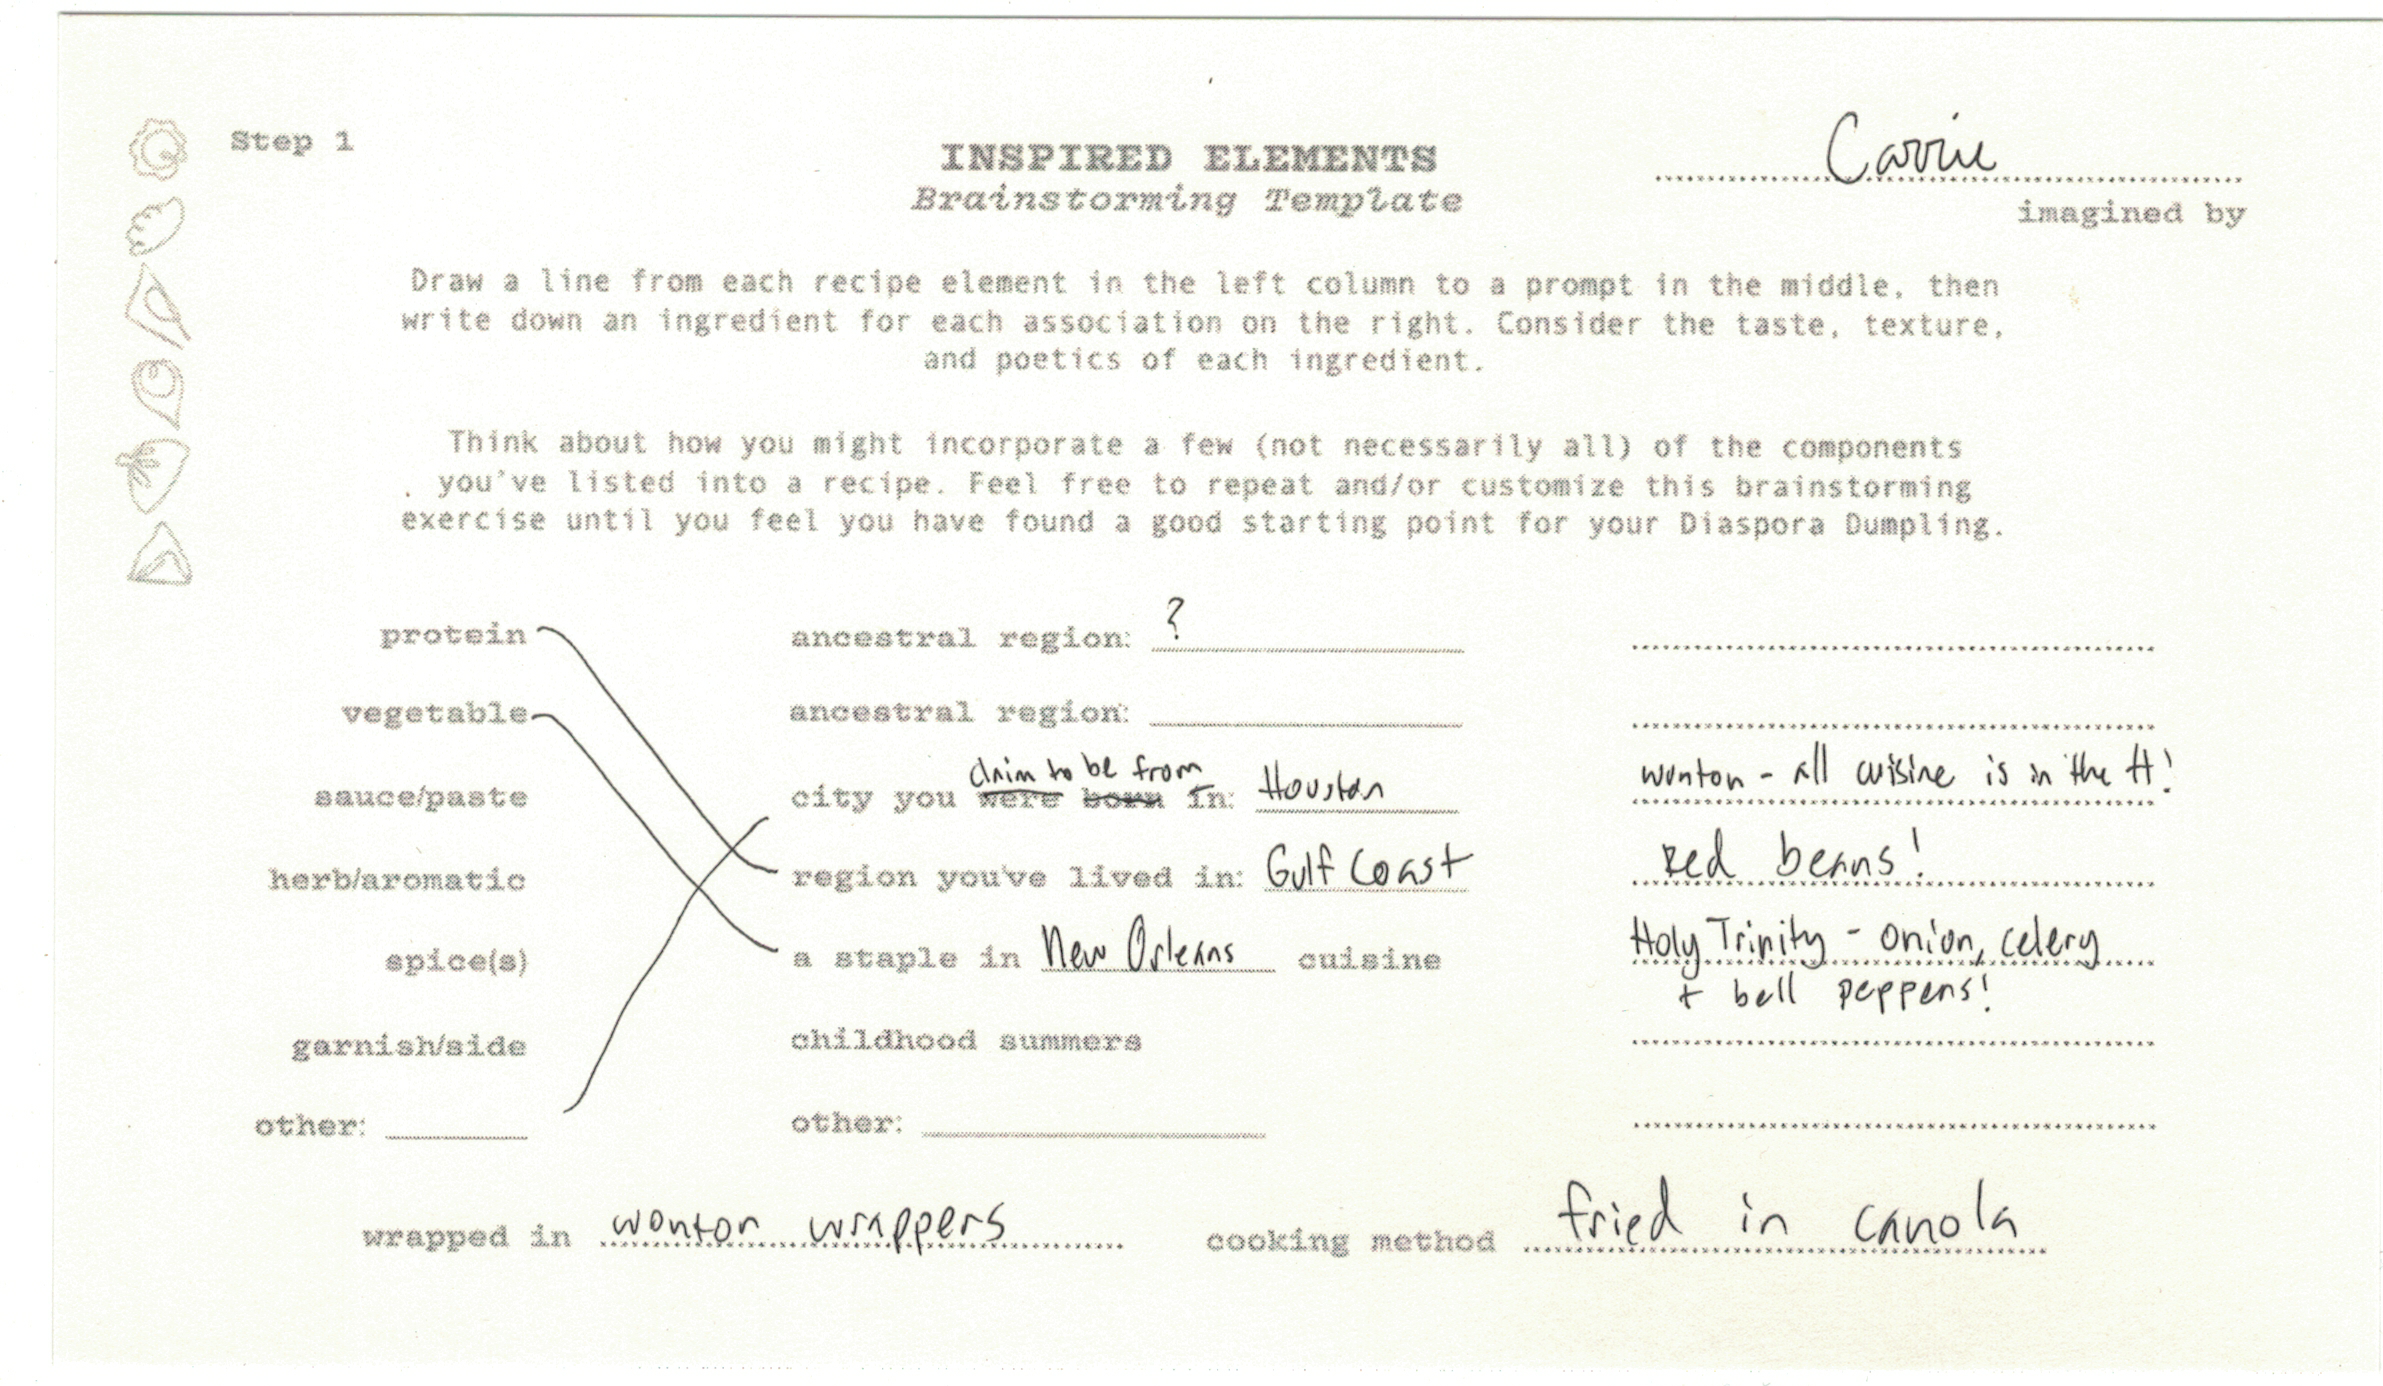 Step 1
INSPIRED ELEMENTS
Brainstorming Template
Carrie
imagined by
Draw a line from each recipe element in the left column to a prompt in the middle, then
write down an ingredient for each association on the right. Consider the taste, texture,
and poetics of each ingredient.
Think about how you might incorporate a few (not necessarily all) of the components
you've listed into a recipe. Feel free to repeat and/or customize this brainstorming
exercise until you feel you have found a good starting point for your Diaspora Dumpling.
protein ancestral region: ?
vegetable ancestral region:
claim to be from
sauce/paste city you were born in: Houston wonton - all cuisine is in the H!
herb/aromatic region you've lived in: Gulf Coast Red beans!
spice(s) a staple in New Orleans cuisine Holy Trinity - onion, celery
+ bell peppers!
garnish/side childhood summers
other: other:
wrapped in wonton wrappers cooking method fried in canola